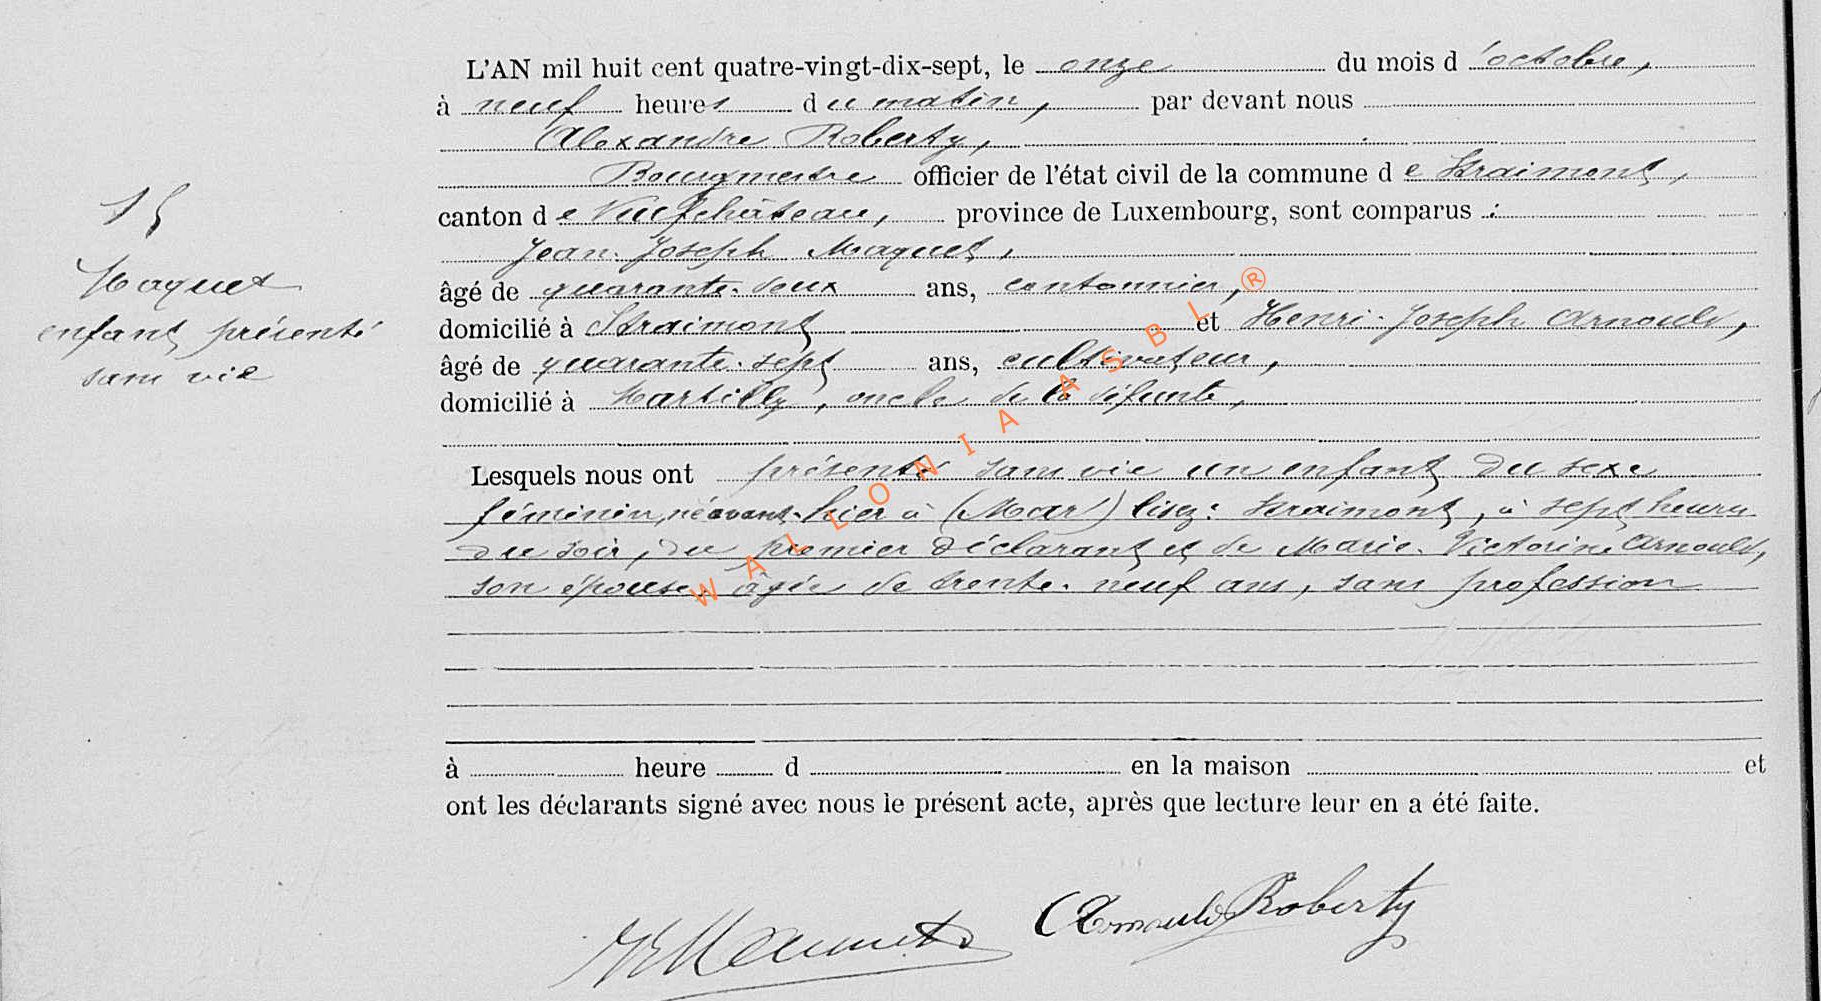 L'AN mil huit cent quatre-vingt-dix-sept, le onze du mois d'octobre,
à neuf heures du matin, par devant nous
Alexandre Roberty,
Bourgmestre officier de l'état civil de la commune de Straimont,
canton de Neufchâteau, province de Luxembourg, sont comparus :
Jean-Joseph Maquet,
âgé de quarante-deux ans, cantonnier,
domicilié à Straimont et Henri-Joseph Arnould,
âgé de quarante-sept ans, cultivateur,
domicilié à Martilly, oncle de la défunte,
Lesquels nous ont présenté sans vie un enfant du sexe
féminin, né avant-hier à (Mar) lisez: Straimont, à sept heures
du soir, du premier déclarant et de Marie-Victorine Arnould,
son épouse, âgée de trente-neuf ans, sans profession
à heure d en la maison et
ont les déclarants signé avec nous le présent acte, après que lecture leur en a été faite.
15
Maquet
enfant présenté
sans vie
Arnould Roberty
WALLONIA ASBL®